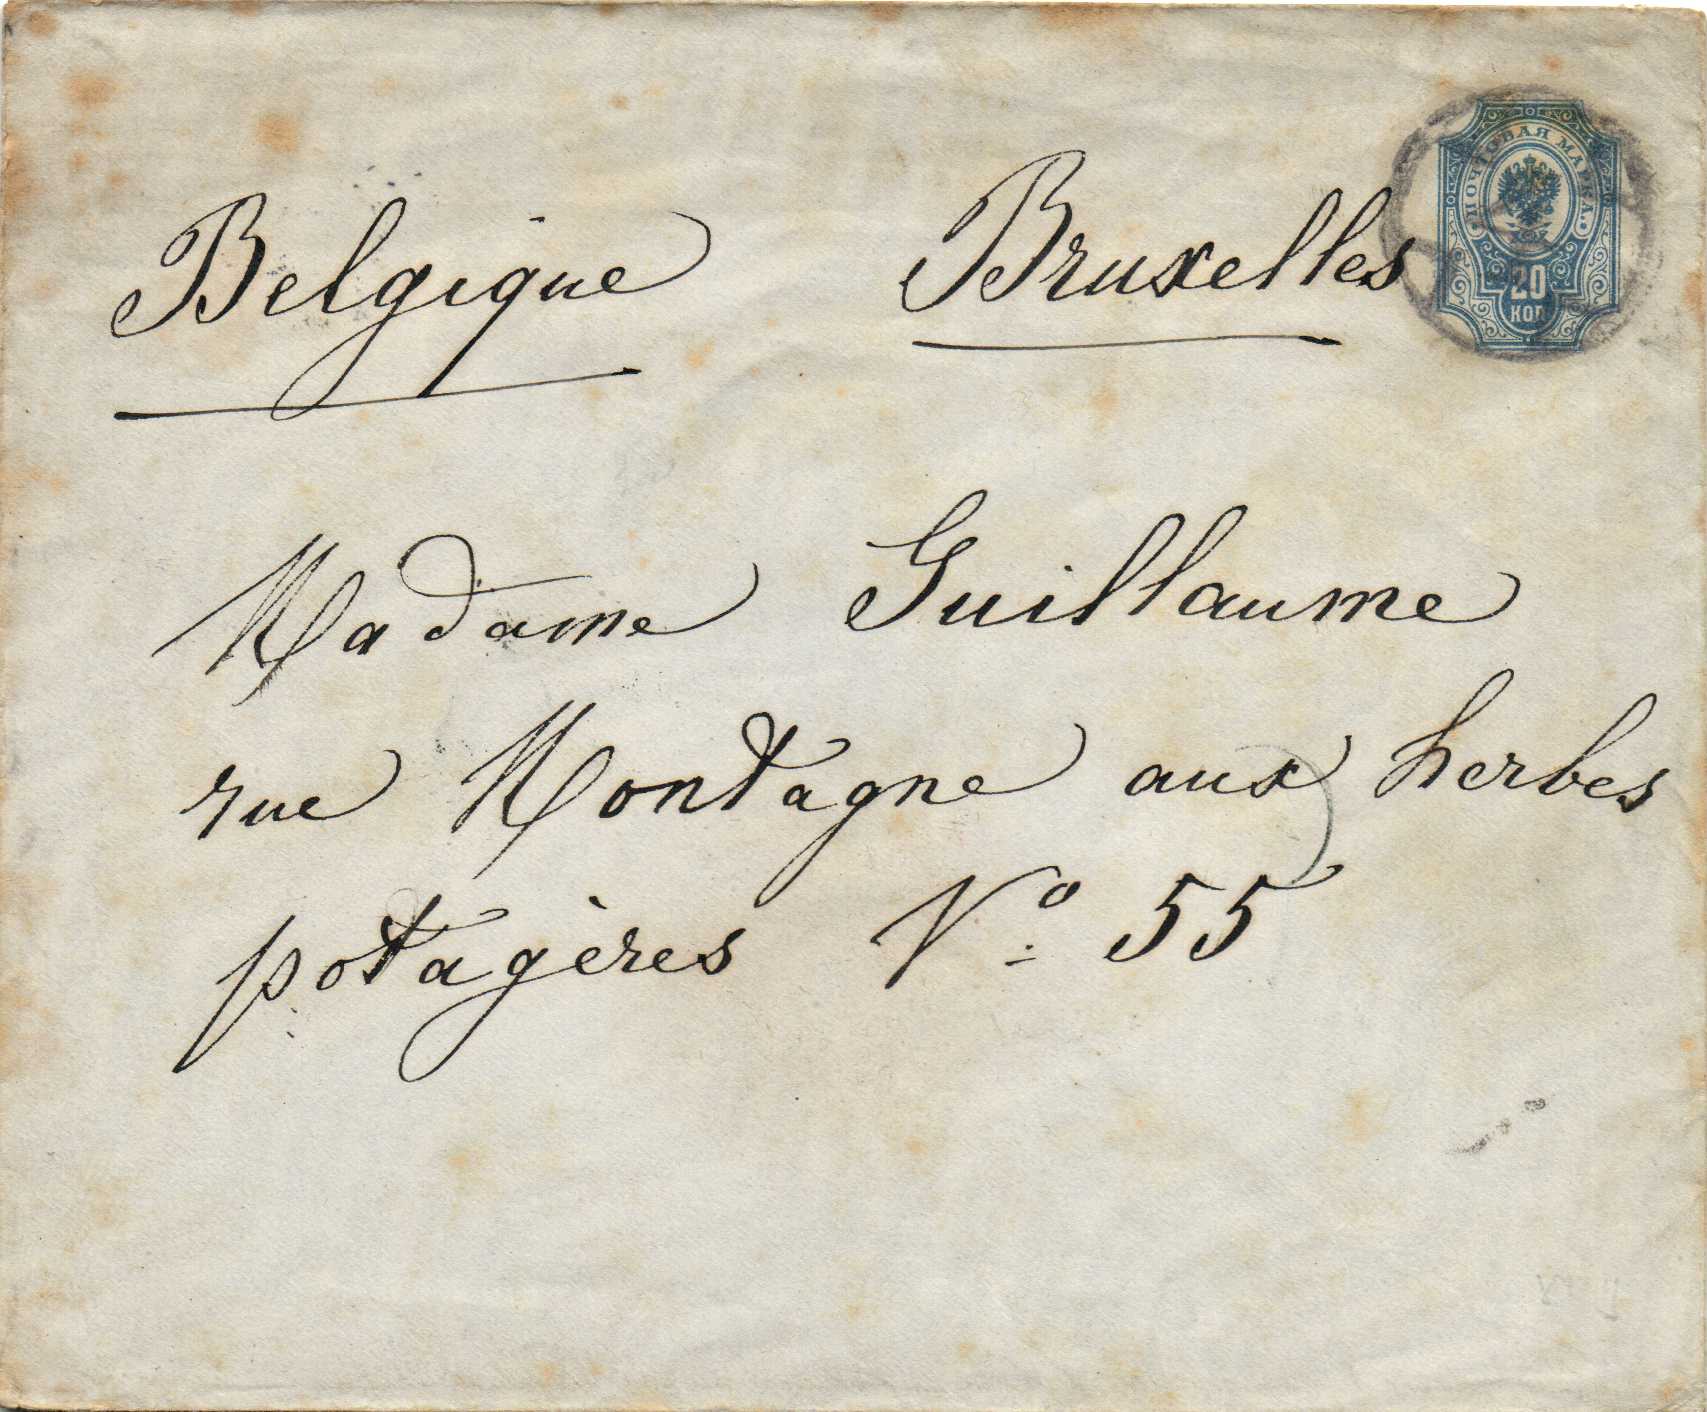 Belgique Bruxelles
ПОЧТОВАЯ МАРКА.
20
КОП
Madame Guillaume
rue Montagne aux herbes
potagères Nº 55